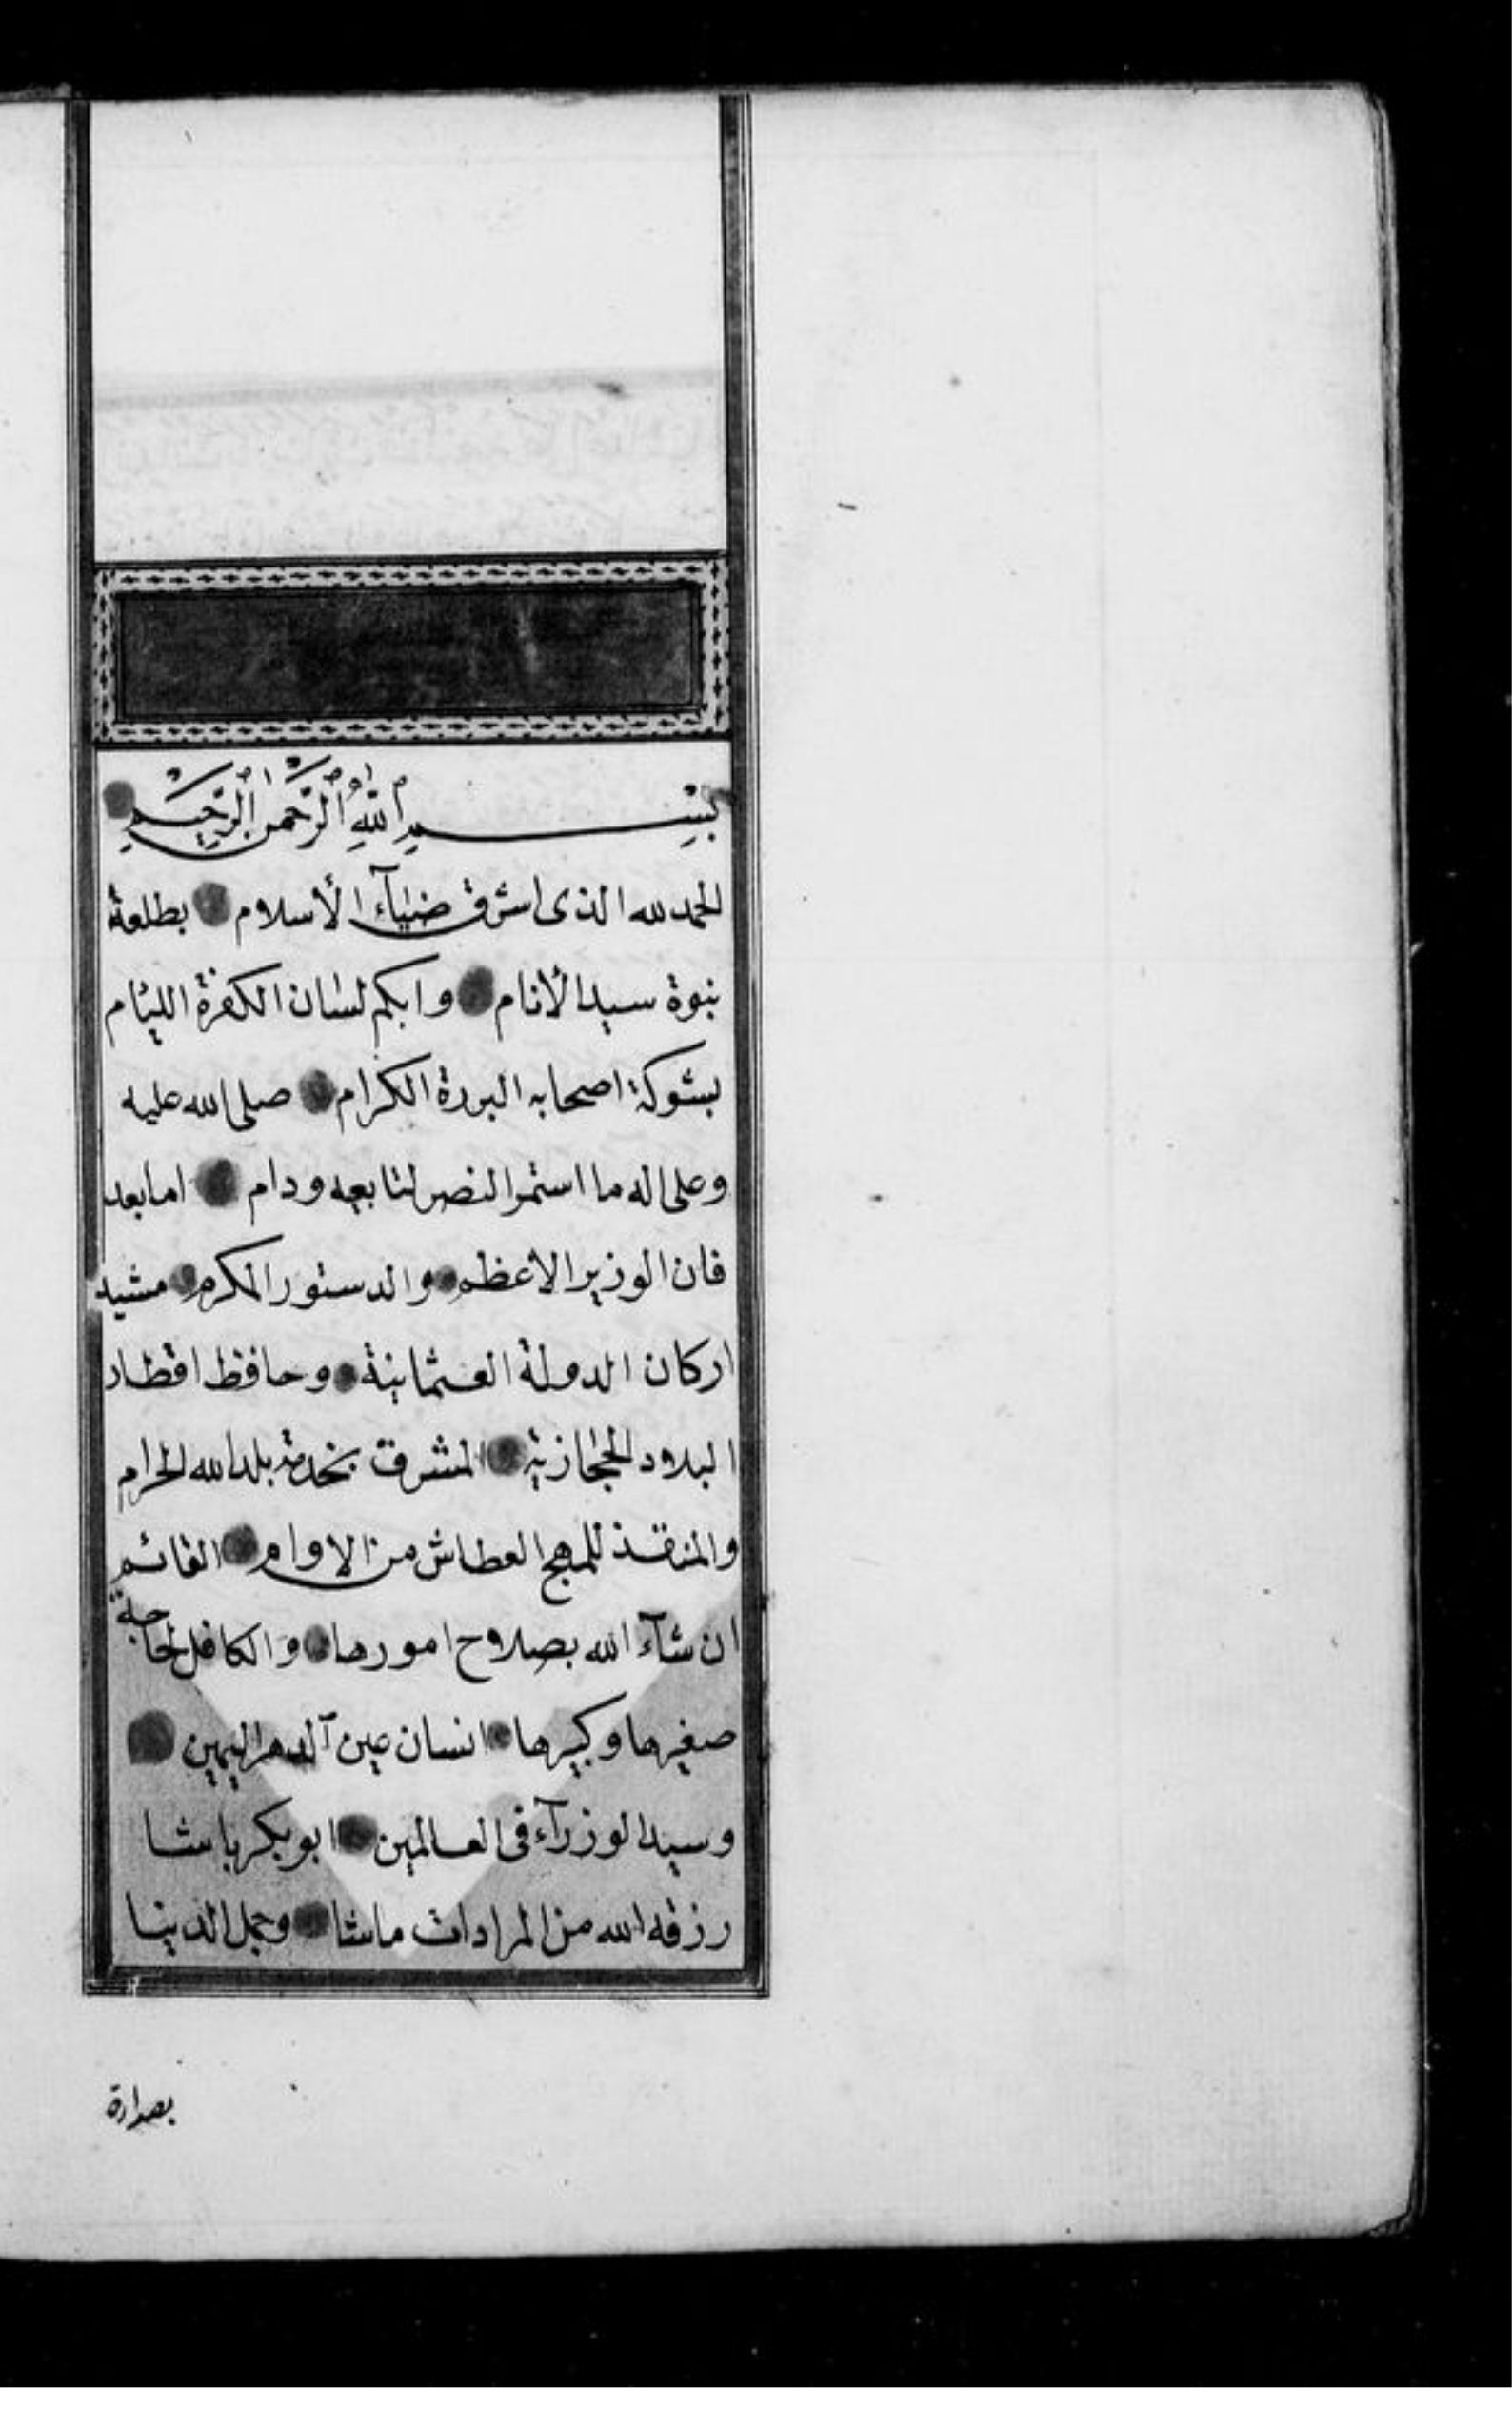 بِسْمِ اللّٰهِ الرَّحْمٰنِ الرَّحِيمِ
الحمد لله الذى اشرق ضيآء الأسلام بطلعة
نبوة سيد الأنام وابكم لسان الكفرة الليئام
بشوكة اصحابه البررة الكرام صلى الله عليه
وعلى اله ما استمر النصر لتابعيه ودام اما بعد
فان الوزير الاعظم والدستور المكرم مشيد
اركان الدولة العثمانية وحافظ اقطار
البلاد الحجازية المشرف بخدمة بلد الله الحرام
والمنقذ للمهج العطاش من الاوام القائم
ان شآء الله بصلاح امورها والكافل لحاجة
صغيرها وكبيرها انسان عين الدهر اليمين
وسيد الوزرآء فى العالمين ابو بكر باشا
رزقه الله من المرادات ماشا وجمل الدنيا
بصدارة